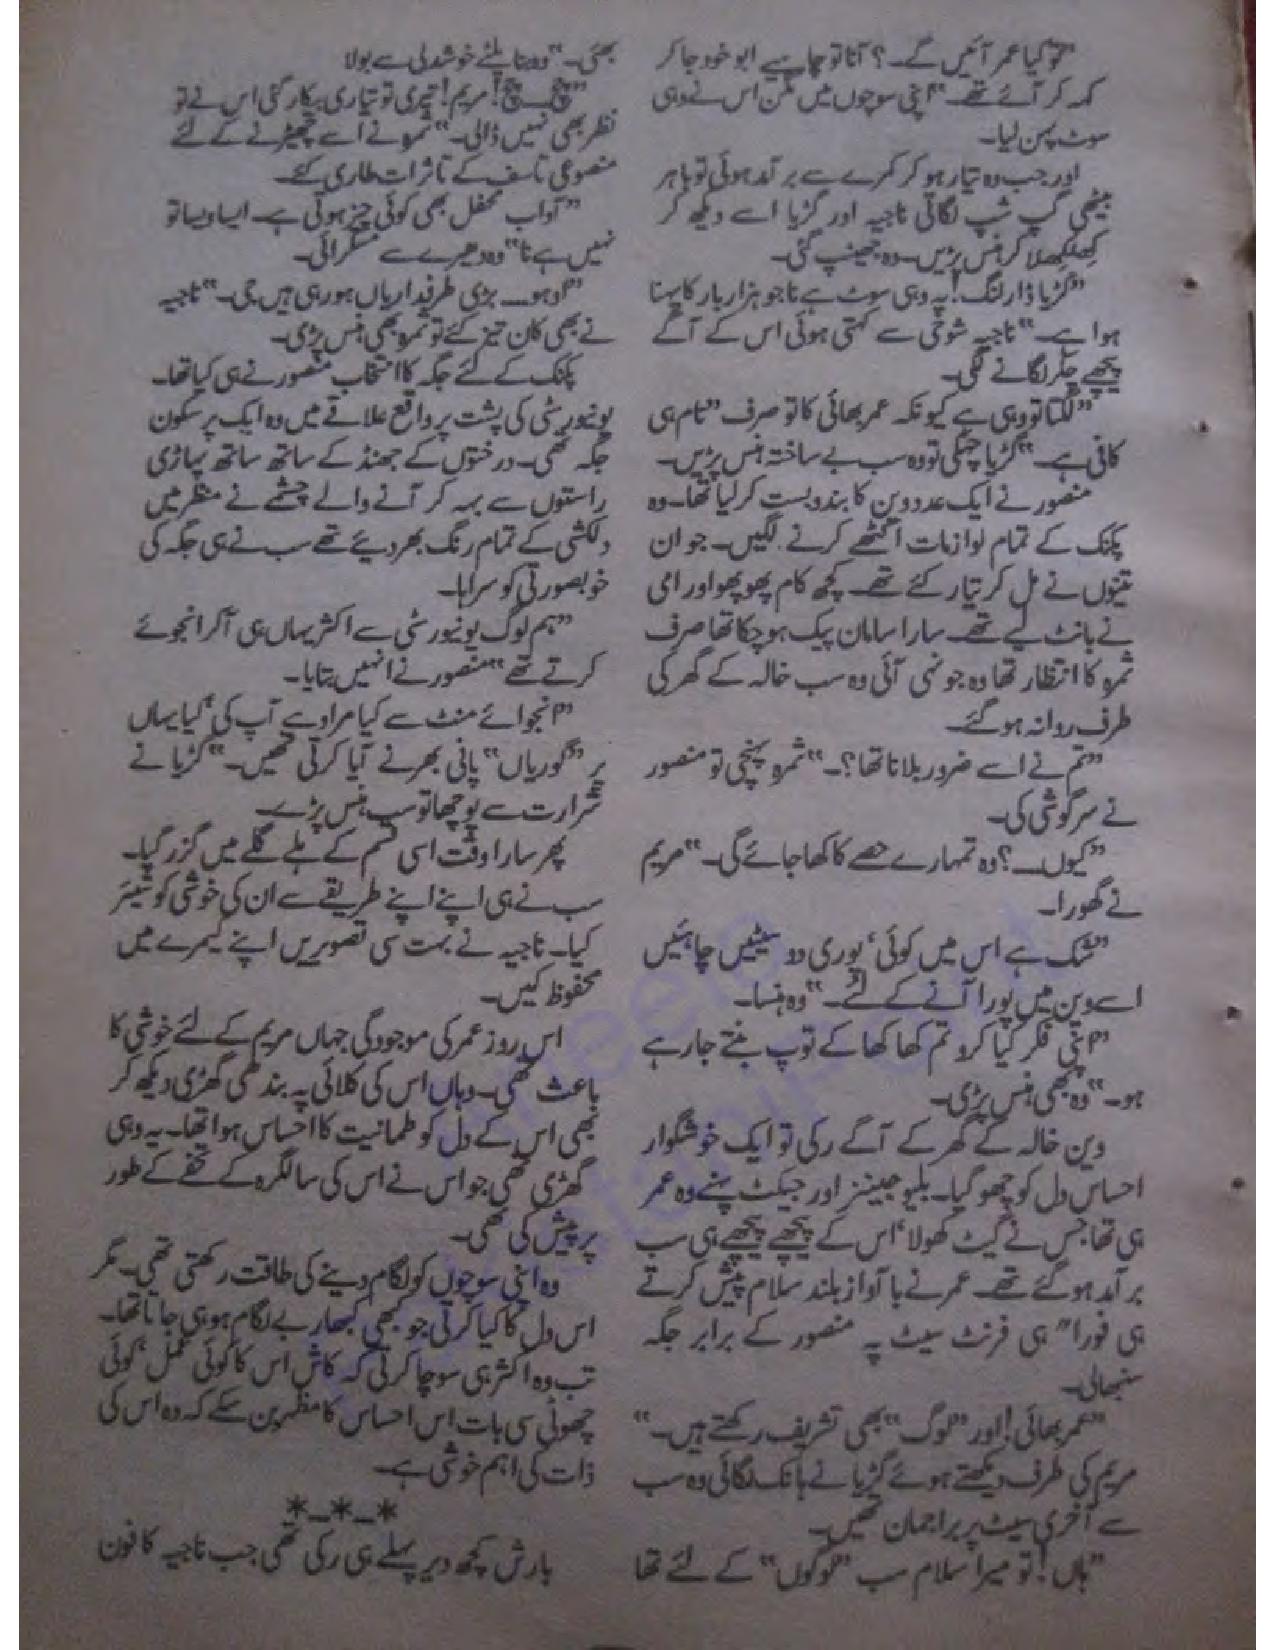 ”تو کیا عمر آئیں گے۔؟ آنا تو چاہیے ابو خود جا کر
کہہ کر آئے تھے۔“ اپنی سوچوں میں مگن اس نے وہی
سوٹ پہن لیا۔
اور جب وہ تیار ہو کر کمرے سے برآمد ہوئی تو باہر
بیٹھی گپ شپ لگاتی ناجیہ اور گڑیا اسے دیکھ کر
کھلکھلا کر ہنس پڑیں۔ وہ جھینپ گئی۔
”گڑیا ڈارلنگ! یہ وہی سوٹ ہے نا جو ہزار بار کا پہنا
ہوا ہے۔“ ناجیہ شوخی سے کہتی ہوئی اس کے آگے
پیچھے چکر لگانے لگی۔
”لگتا تو وہی ہے کیونکہ عمر بھائی کا تو صرف ”نام ہی
کافی ہے۔“ گڑیا چہکی تو وہ سب بے ساختہ ہنس پڑیں۔
منصور نے ایک عدد وین کا بندوبست کر لیا تھا۔ وہ
پکنک کے تمام لوازمات اکٹھے کرنے لگیں۔ جو ان
تینوں نے مل کر تیار کئے تھے۔ کچھ کام پھوپھو اور امی
نے بانٹ لیے تھے۔ سارا سامان پیک ہو چکا تھا صرف
ثمرہ کا انتظار تھا وہ جونہی آئی وہ سب خالہ کے گھر کی
طرف روانہ ہو گئے۔
”تم نے اسے ضرور بلانا تھا؟۔“ ثمرہ پہنچی تو منصور
نے سرگوشی کی۔
”کیوں۔۔۔؟ وہ تمہارے حصے کا کھا جائے گی۔“ مریم
نے گھورا۔
”شک ہے اس میں کوئی‘ پوری دو سیٹیں چاہئیں
اسے وین میں پورا آنے کے لئے۔“ وہ ہنسا۔
”اپنی فکر کیا کرو تم کھا کھا کے توپ بنتے جا رہے
ہو۔“ وہ بھی ہنس پڑی۔
وین خالہ کے گھر کے آگے رکی تو ایک خوشگوار
احساس دل کو چھو گیا۔ بلیو جینز اور جیکٹ پہنے وہ عمر
ہی تھا جس نے گیٹ کھولا‘ اس کے پیچھے پیچھے ہی سب
برآمد ہو گئے تھے۔ عمر نے با آواز بلند سلام پیش کرتے
ہی فورا” ہی فرنٹ سیٹ پہ منصور کے برابر جگہ
سنبھالی۔
”عمر بھائی! اور ”لوگ“ بھی تشریف رکھتے ہیں۔“
مریم کی طرف دیکھتے ہوئے گڑیا نے ہانک لگائی وہ سب
سے آخری سیٹ پر براجمان تھیں۔
”ہاں! تو میرا سلام سب ”لوگوں“ کے لئے تھا
بھئی۔“ وہ بنا پلٹے خوشدلی سے بولا
”چچ۔۔۔ چچ! مریم! تیری تو تیاری بیکار گئی اس نے تو
نظر بھی نہیں ڈالی۔“ ثمرہ نے اسے چھیڑنے کے لئے
مصنوعی تاسف کے تاثرات طاری کئے۔
”آداب محفل بھی کوئی چیز ہوتی ہے۔ ایسا ویسا تو
نہیں ہے نا“ وہ دھیرے سے مسکرائی۔
”اوہو۔۔۔ بڑی طرفداریاں ہو رہی ہیں جی۔“ ناجیہ
نے بھی کان تیز کئے تو ثمرہ بھی ہنس پڑی۔
پکنک کے لئے جگہ کا انتخاب منصور نے ہی کیا تھا۔
یونیورسٹی کی پشت پر واقع علاقے میں وہ ایک پر سکون
جگہ تھی۔ درختوں کے جھنڈ کے ساتھ ساتھ پہاڑی
راستوں سے بہہ کر آنے والے چشمے نے منظر میں
دلکشی کے تمام رنگ بھر دیئے تھے سب نے ہی جگہ کی
خوبصورتی کو سراہا۔
”ہم لوگ یونیورسٹی سے اکثر یہاں ہی آکر انجوائے
کرتے تھے“ منصور نے انہیں بتایا۔
”انجوائے منٹ سے کیا مراد ہے آپ کی‘ کیا یہاں
پر ”گوریاں“ پانی بھرنے آیا کرتی تھیں۔“ گڑیا نے
شرارت سے پوچھا تو سب ہنس پڑے۔
پھر سارا وقت اسی قسم کے ہلے گلے میں گزر گیا۔
سب نے ہی اپنے اپنے طریقے سے ان کی خوشی کو شیئر
کیا۔ ناجیہ نے بہت سی تصویریں اپنے کیمرے میں
محفوظ کیں۔
اس روز عمر کی موجودگی جہاں مریم کے لئے خوشی کا
باعث تھی۔ وہاں اس کی کلائی پہ بندھی گھڑی دیکھ کر
بھی اس کے دل کو طمانیت کا احساس ہوا تھا۔ یہ وہی
گھڑی تھی جو اس نے اس کی سالگرہ کے تحفے کے طور
پر پیش کی تھی۔
وہ اپنی سوچوں کو لگام دینے کی طاقت رکھتی تھی۔ مگر
اس دل کا کیا کرتی جو کبھی کبھار بے لگام ہو ہی جاتا تھا۔
تب وہ اکثر ہی سوچا کرتی کہ کاش اس کا کوئی عمل‘ کوئی
چھوٹی سی بات اس احساس کا مظہر بن سکے کہ وہ اس کی
ذات کی اہم خوشی ہے۔
*_*_*
بارش کچھ دیر پہلے ہی رکی تھی جب ناجیہ کا فون